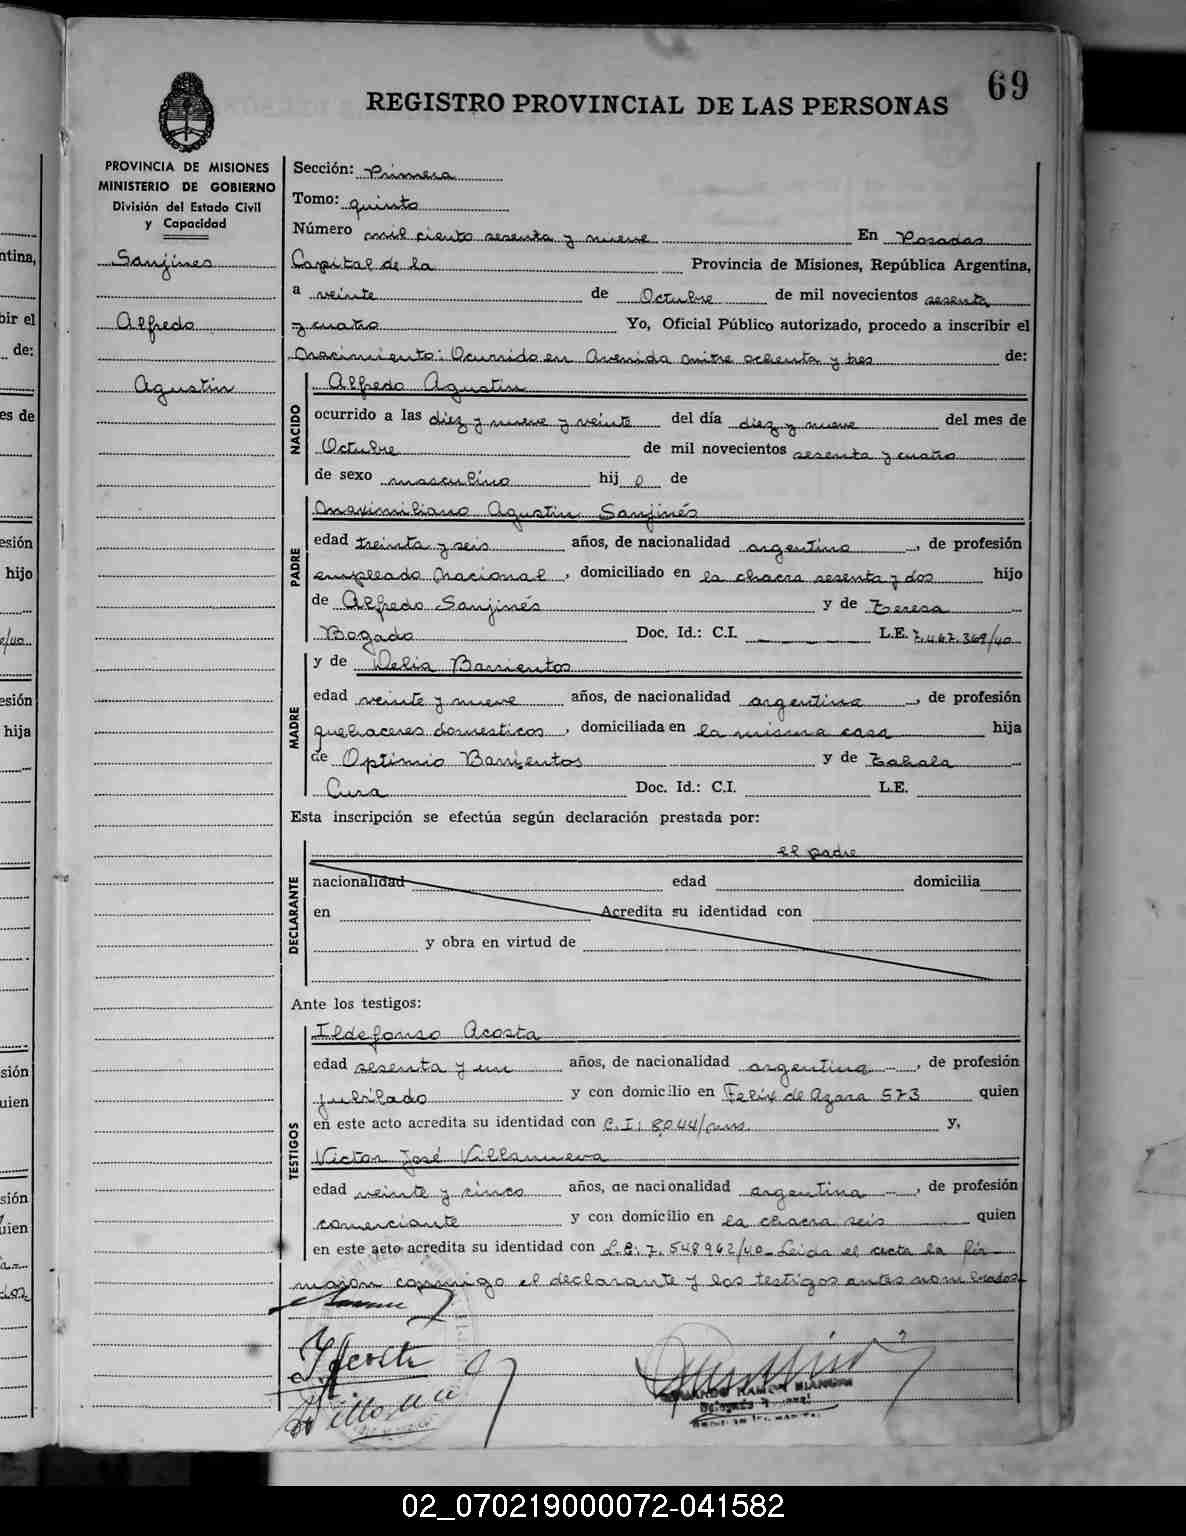 69
REGISTRO PROVINCIAL DE LAS PERSONAS
PROVINCIA DE MISIONES
MINISTERIO DE GOBIERNO
División del Estado Civil
y Capacidad
Sanjines
Alfredo
Agustin
Sección: Primera
Tomo: quinto
Número mil ciento sesenta y nueve En Posadas
Capital de la Provincia de Misiones, República Argentina,
a veinte de Octubre de mil novecientos sesenta
y cuatro Yo, Oficial Público autorizado, procedo a inscribir el
nacimiento: Ocurrido en Avenida mitre ochenta y tres de:
NACIDO
Alfredo Agustin
ocurrido a las diez y nueve y veinte del día diez y nueve del mes de
Octubre de mil novecientos sesenta y cuatro
de sexo masculino hij o de
PADRE
Maximiliano Agustin Sanjinés
edad treinta y seis años, de nacionalidad argentino, de profesión
empleado nacional, domiciliado en la chacra sesenta y dos hijo
de Alfredo Sanjinés y de Teresa
Bogado Doc. Id.: C.I. L.E. 7.467.369/40
y de Delia Barrientos
MADRE
edad veinte y nueve años, de nacionalidad argentina, de profesión
quehaceres domesticos, domiciliada en la misma casa hija
de Optimio Barrientos y de Zahala
Cura Doc. Id.: C.I. L.E.
Esta inscripción se efectúa según declaración prestada por:
DECLARANTE
el padre
nacionalidad edad domicilia
en Acredita su identidad con
y obra en virtud de
Ante los testigos:
TESTIGOS
Ildefonso Acosta
edad sesenta y un años, de nacionalidad argentina, de profesión
jubilado y con domicilio en Felix de Azara 573 quien
en este acto acredita su identidad con C.I: 8044/mns. y,
Victor José Villanueva
edad veinte y cinco años, de nacionalidad argentina, de profesión
comerciante y con domicilio en la chacra seis quien
en este acto acredita su identidad con L.E: 7.548962/40_Leida el acta la fir_
maron conmigo el declarante y los testigos antes nombrados
02_070219000072-041582